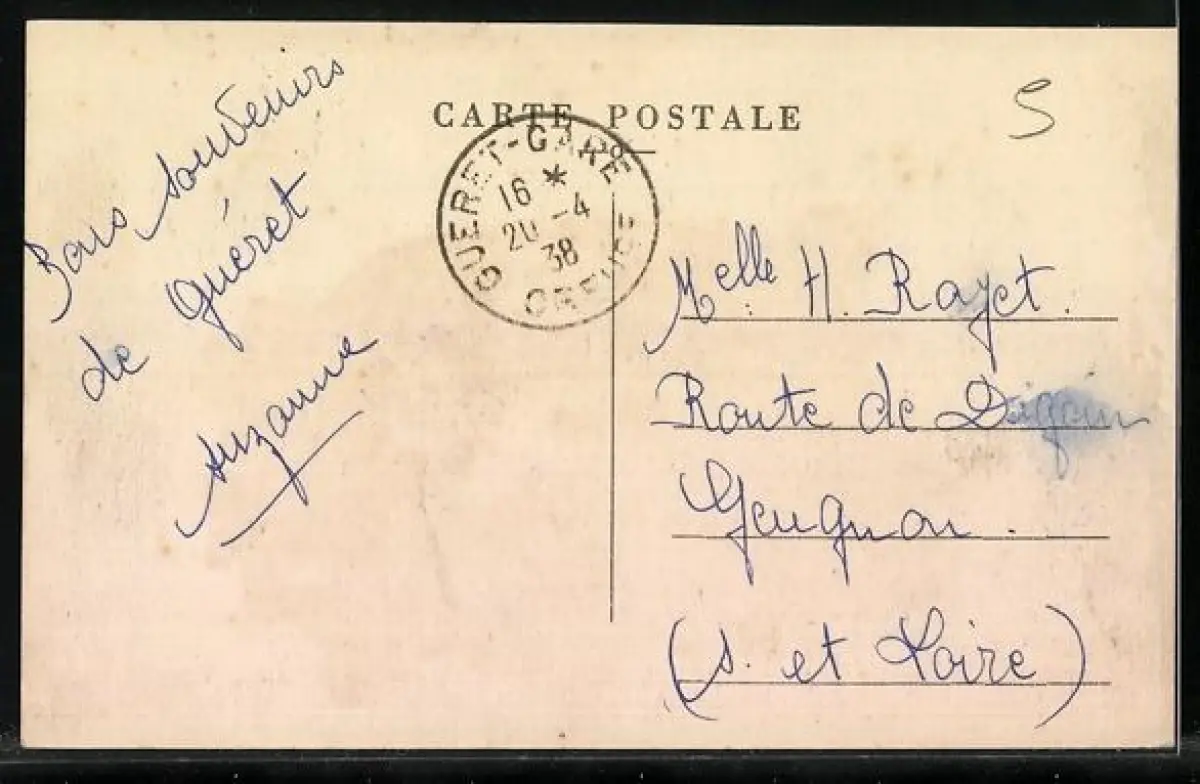 CARTE POSTALE
5
GUERET-GARE
16 *
20 -4
38
CREUSE
Bons souvenirs
de Guéret
Suzanne
Melle H. Rayet.
Route de Digoin
Geugnon.
(S. et Loire)